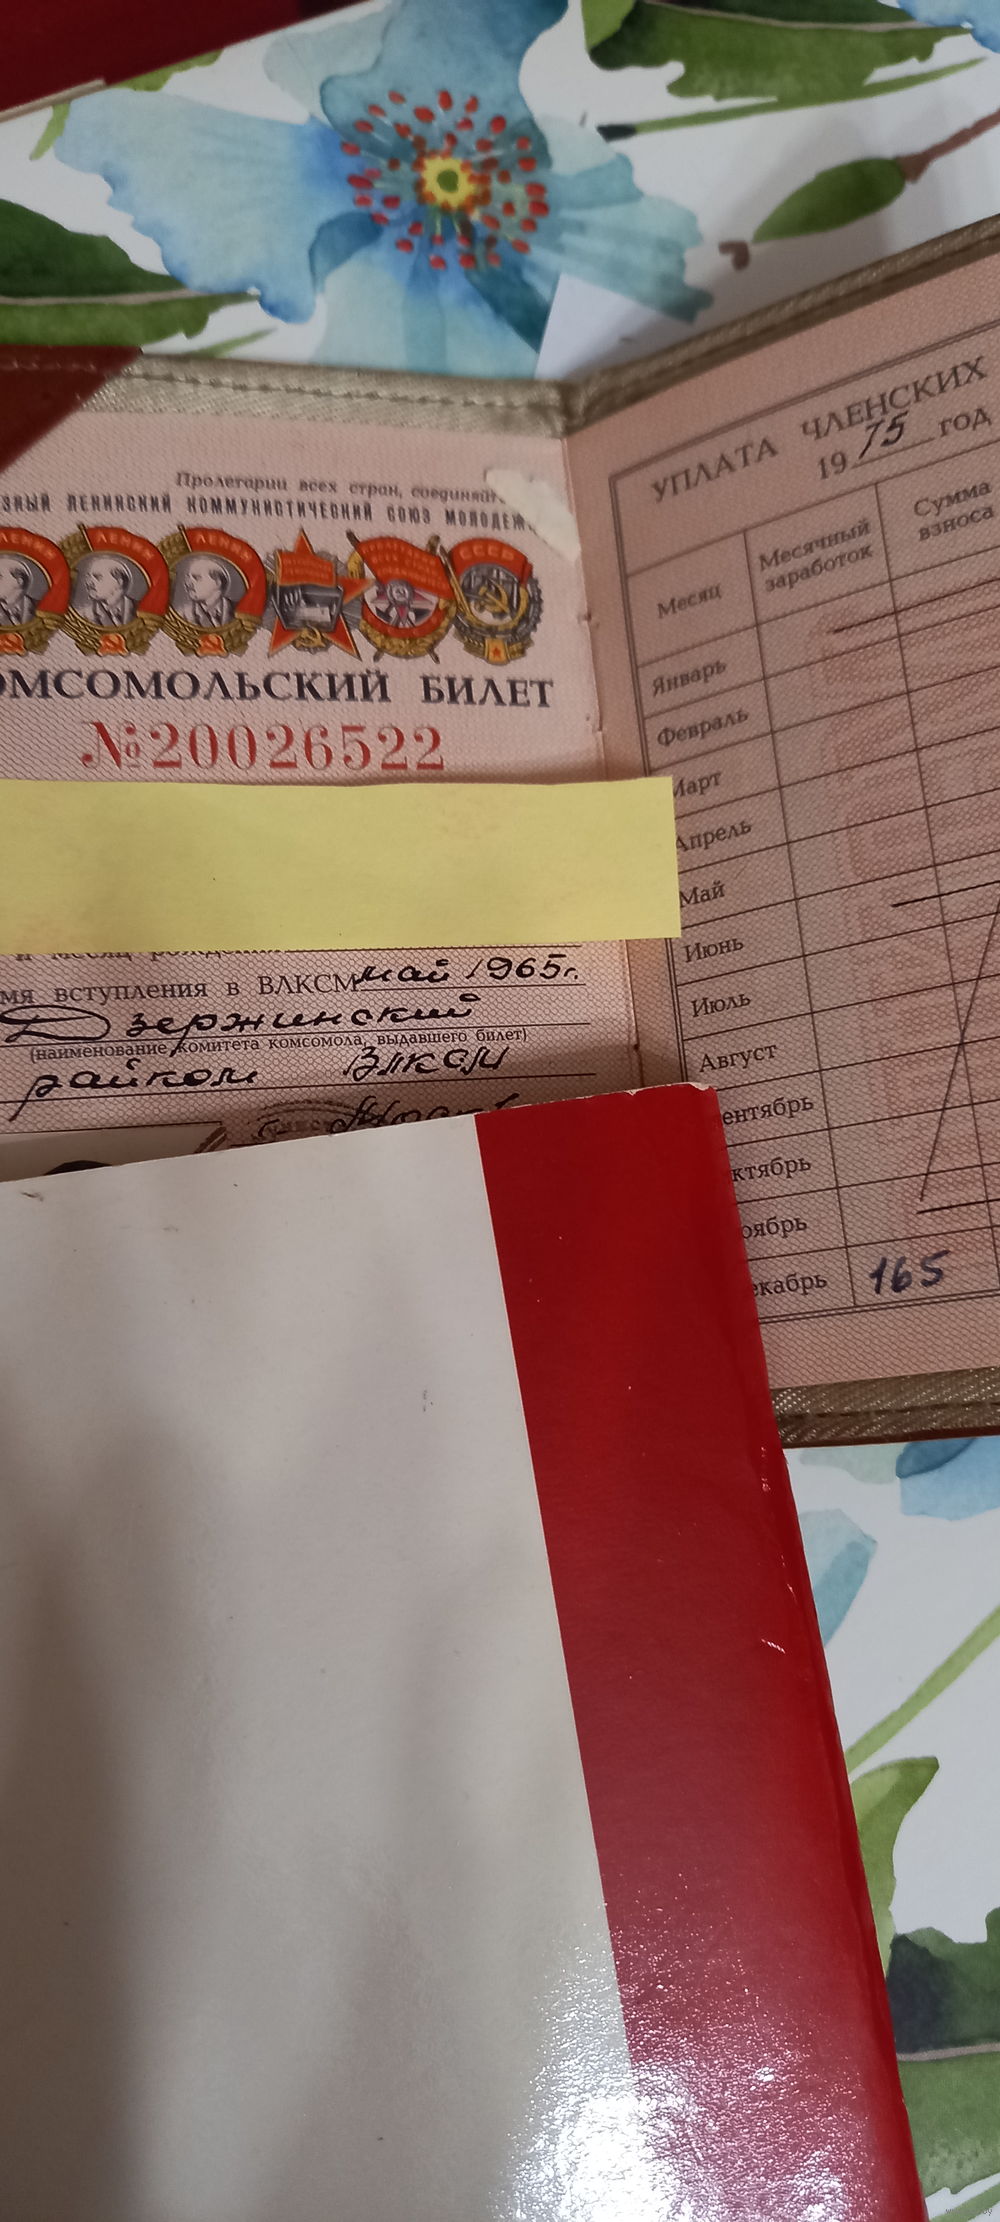 Пролетарии всех стран, соединяйт
ЗНЫЙ ЛЕНИНСКИЙ КОММУНИСТИЧЕСКИЙ СОЮЗ МОЛОДЕЖ
ЛЕНИН ЛЕНИН ЛЕНИН СССР
ОМСОМОЛЬСКИЙ БИЛЕТ
№20026522
и месяц рождени
мя вступления в ВЛКСМ май 1965г.
Дзержинский
(наименование комитета комсомола, выдавшего билет)
райком ВЛКСМ
УПЛАТА ЧЛЕНСКИХ
1975 год
Месяц
Месячный заработок
Сумма взноса
Январь
Февраль
Март
Апрель
Май
Июнь
Июль
Август
ентябрь
ктябрь
оябрь
екабрь 165